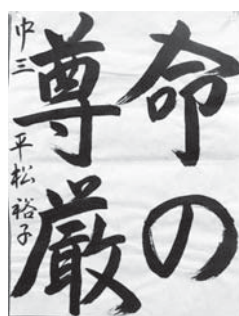 命の
尊厳
中三 平松裕子